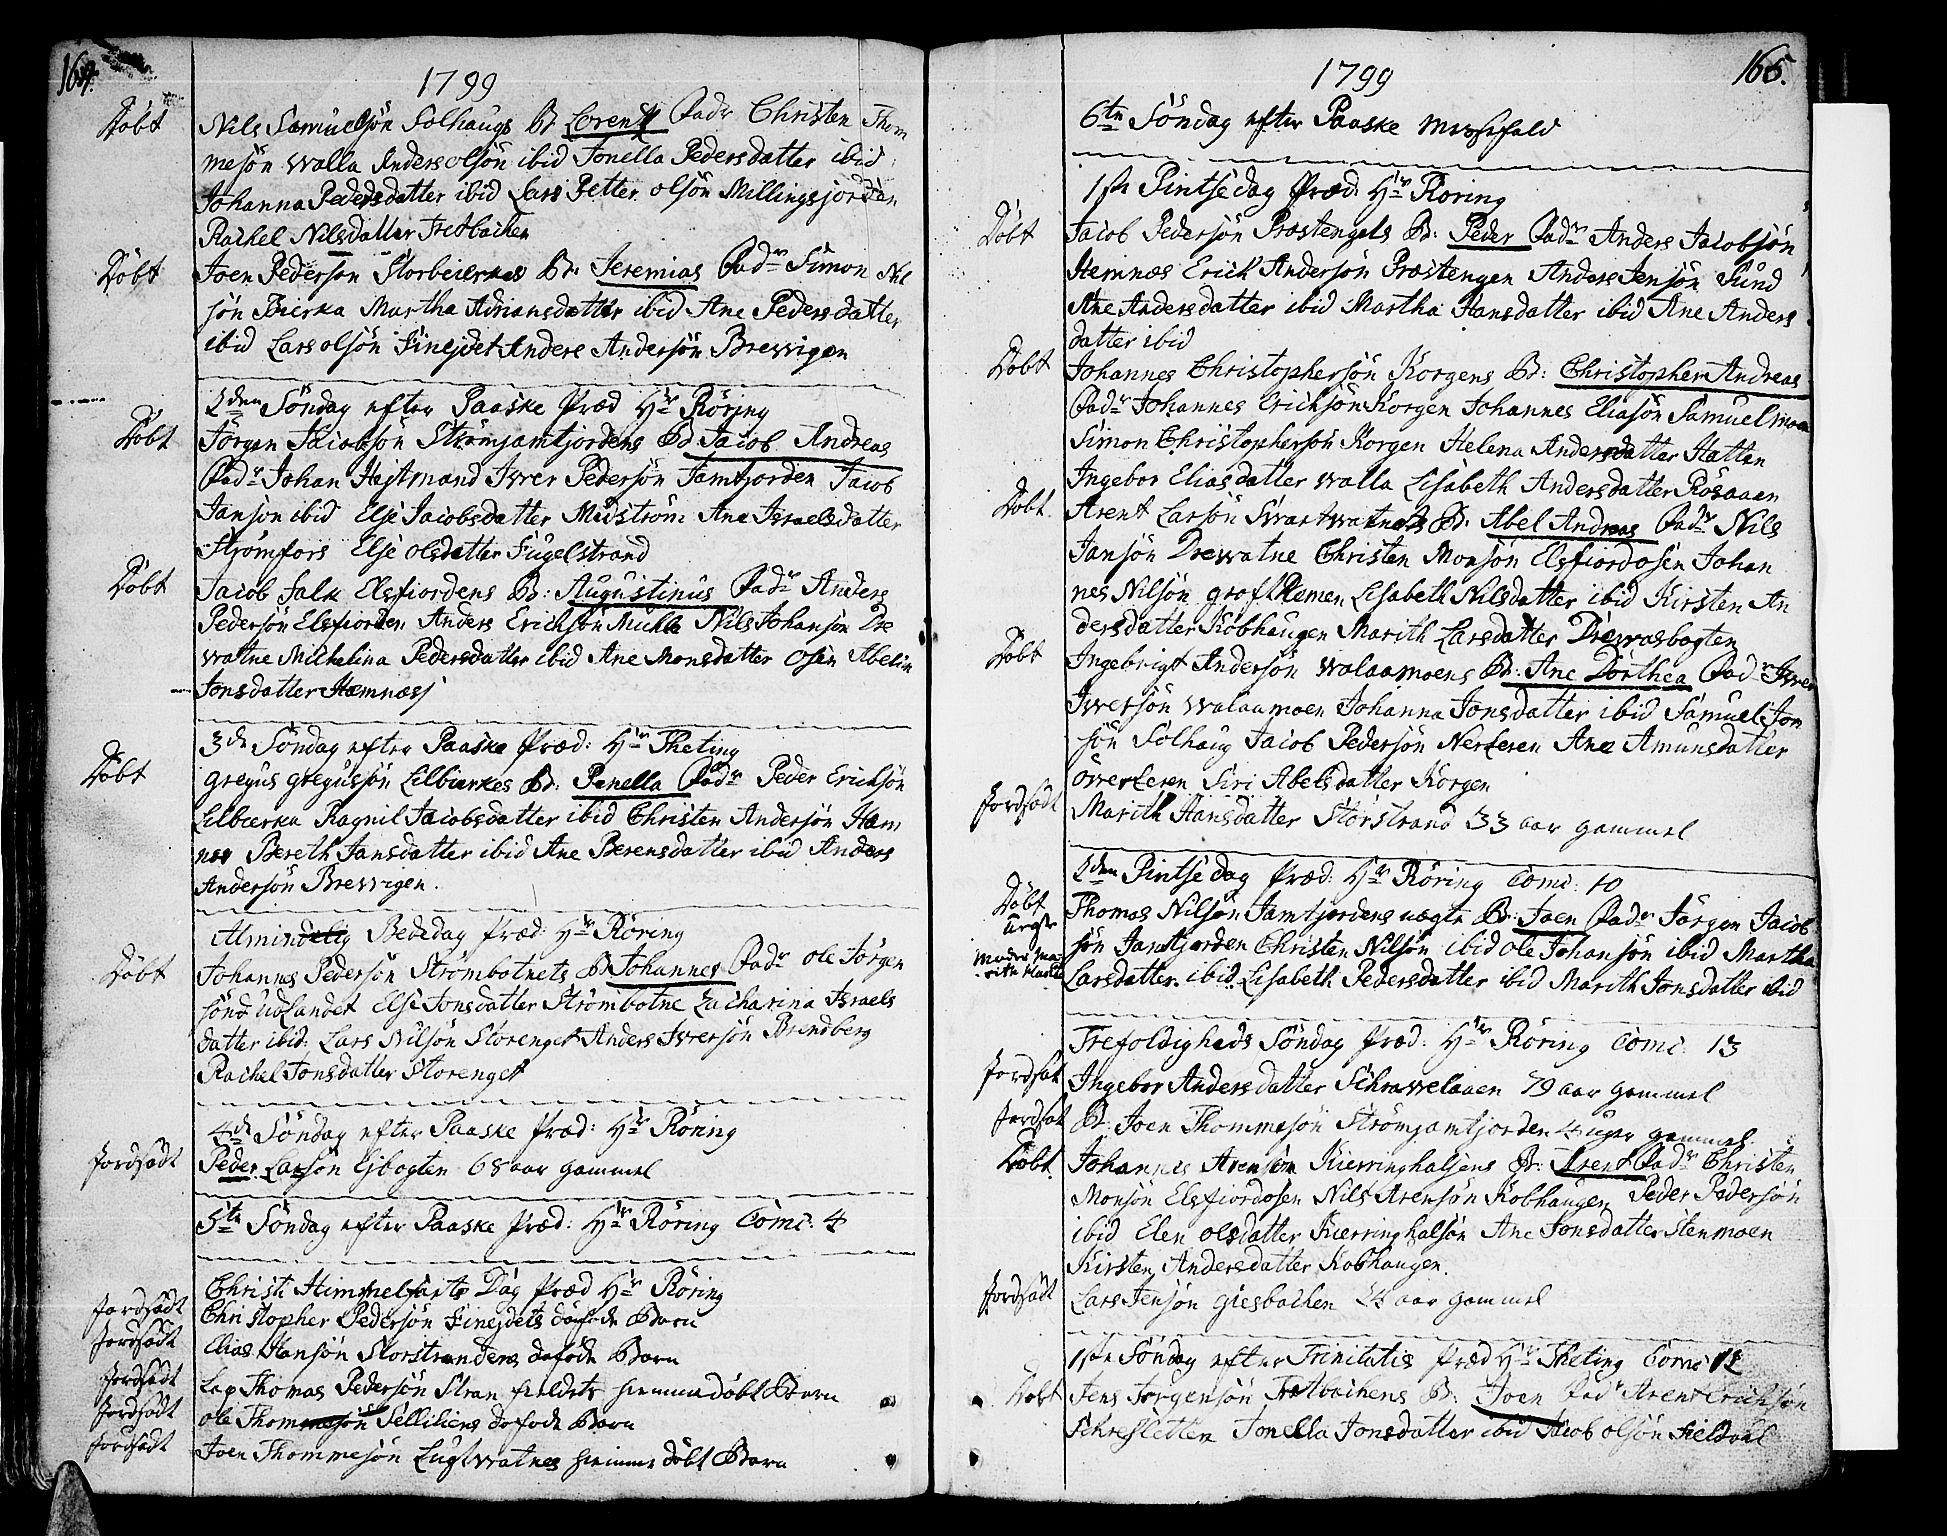 164.
1799
Döbt
Nils Samuelsön Solhaugs B: Lorentz Fadr Christen Thom
mesön Walla Anders olsön ibid Jonella Pedersdatter ibid
Johanna Pedersdatter ibid Lars Petter olsön Millingsjorden
Rachel Nilsdatter Tretbachen
Döbt
Joen Pedersøn Storbeierkes B: Jeremias Fadr Simon Nil
sön Bierka Martha Adriansdatter ibid Ane Pedersdatter
ibid Lars olsön Finejdet Anders Andersön Brevvigen
2den Söndag efter Paaske Præd Hr Röring
Döbt
Jörgen Jacobsön Strömjamtjordens B: Jacob Andreas
Fadr Johan Hestmand Iver Pedersön Jamtjorden Jacob
Jansön ibid Else Jacobsdatter Midström Ane Israelsdatter
Strömfors Else olsdatter Fugelstrand
Döbt
Jacob Falk Elsfiordens B: Augustinus Fadr Anders
Pedersön Elsfiorden Anders Erichsön Muhle Nils Johansön Dre
vatne Michelina Pedersdatter ibid Ane Monsdatter Osen Abelin
Jonsdatter Hæmnæss
3de Söndag efter Paaske Præd: Hr Theting
Döbt
Gregus Gregusön Lilbierkes B: Penella Fadr Peder Erichsön
Lilbierka Ragnil Jacobsdatter ibid Christen Andersön Hæm
nes Bereth Jansdatter ibid Ane Berensdatter ibid Anders
Andersön Brevvigen.
Almindelig Bededag Præd: Hr Röring
Döbt
Johannes Pedersön Strömbotnets B: Johannes Fadr ole Jörgen
sön Udlandet Else Jonsdatter Strömbotne Zacharina Israels
datter ibid: Lars Nilsön Storenget Anders Iversön Brendberg
Rachel Jonsdatter Storenget
4de Söndag efter Paaske Præd: Hr Röring
Jordfæst
Peder Larsön Ejbogten 68 aar gammel
5te Söndag efter Paaske Præd: Hr Röring Comc: 4
Christi Himmelfarts Dag Præd Hr Röring
Jordfæst
Christopher Pedersön Finejdets döföde Barn
Jordfæst
Elias Hansön Storstrandens döföde Barn
Jordfæst
Lap Thomas Pedersön Stran fieldets hiemmedöbt Barn
Jordfæst
ole Thommesön Selliliens döföde Barn
Jordfæst
Joen Thommesön Lugtvatnes hiemme döbt Barn
165.
1799
6te Söndag efter Paaske Messefald
1ste Pintsedag Præd: Hr Röring
Döbt
Jacob Pedersön Præstengets B: Peder Fadr Anders Jacobsön
Hemnæs Erich Andersön Præstengen Anders Jensön Sund
Ane Andersdatter ibid Martha Hansdatter ibid Ane Anders
datter ibid
Döbt
Johannes Christophersön Korgens B: Christopher Andreas
Fadr Johannes Erichsön Korgen Johannes Eliasön Samuelmoen
Simon Christophersön Korgen Helena Andersdatter Hatten
Ingebor Eliasdatter Walla Lisabeth Andersdatter Rösaaen
Döbt.
Arent Larsön Svartvatnets B: Abel Andreas Fadr Nils
Jansön Drevatne Christen Monsön Elsfiordosen Johan
nes Nilsön Groftremen Lisabeth Nilsdatter ibid Kirsten An
dersdatter Kobhaugen Marith Larsdatter Drevasbogten
Döbt
Ingebrigt Andersön Walaamoens B: Ane Dorthea Fadr Iver
Iversön Walaamoen Johanna Jonsdatter ibid Samuel Jon
sön Solhaug Jacob Pedersön Nerleren Ane Amunsdatter
Överleren Siri Abelsdatter Korgen
Jordfæst
Marith Hansdatter Storstrand 33 aar gammel
2den Pintsedag Præd: Hr Röring Comc: 10
Döbt
uegte
Thomas Nilsön Jamtjordens uægte B: Joen Fadr Jörgen Jacob
sön Jamtjorden Christen Nilsön ibid ole Johansön ibid Martha
Larsdatter ibid Lisabeth Pedersdatter ibid Marith Jonsdatter ibid
Trefoldigheds Söndag Præd: Hr Röring Comc: 13
Jordfæst
Ingebor Andersdatter Schravelaaen 79 aar gammel
Jordfæst
B: Joen Thommesön Strömjamtjorden 4 uger gammel
Döbt
Johannes Arensön Kierringhalsens B: Arent Fadr Christen
Monsön Elsfiordosen Nils Arensön Kobhaugen Peder Pedersön
ibid Elen olsdatter Kierringhalsön Ane Jonsdatter Stenmoen
Kirsten Andersdatter Kobhaugen.
Jordfæst
Lars Jensön Giesbachen 24 aar gammel
1ste Söndag efter Trinitatis Præd Hr Theting Comc 12
Döbt
Jens Jörgensön Tretbachens B: Joen Fadr Arent Erichsön
Schresletten Jonella Jonsdatter ibid Jacob olsön Fieldahl